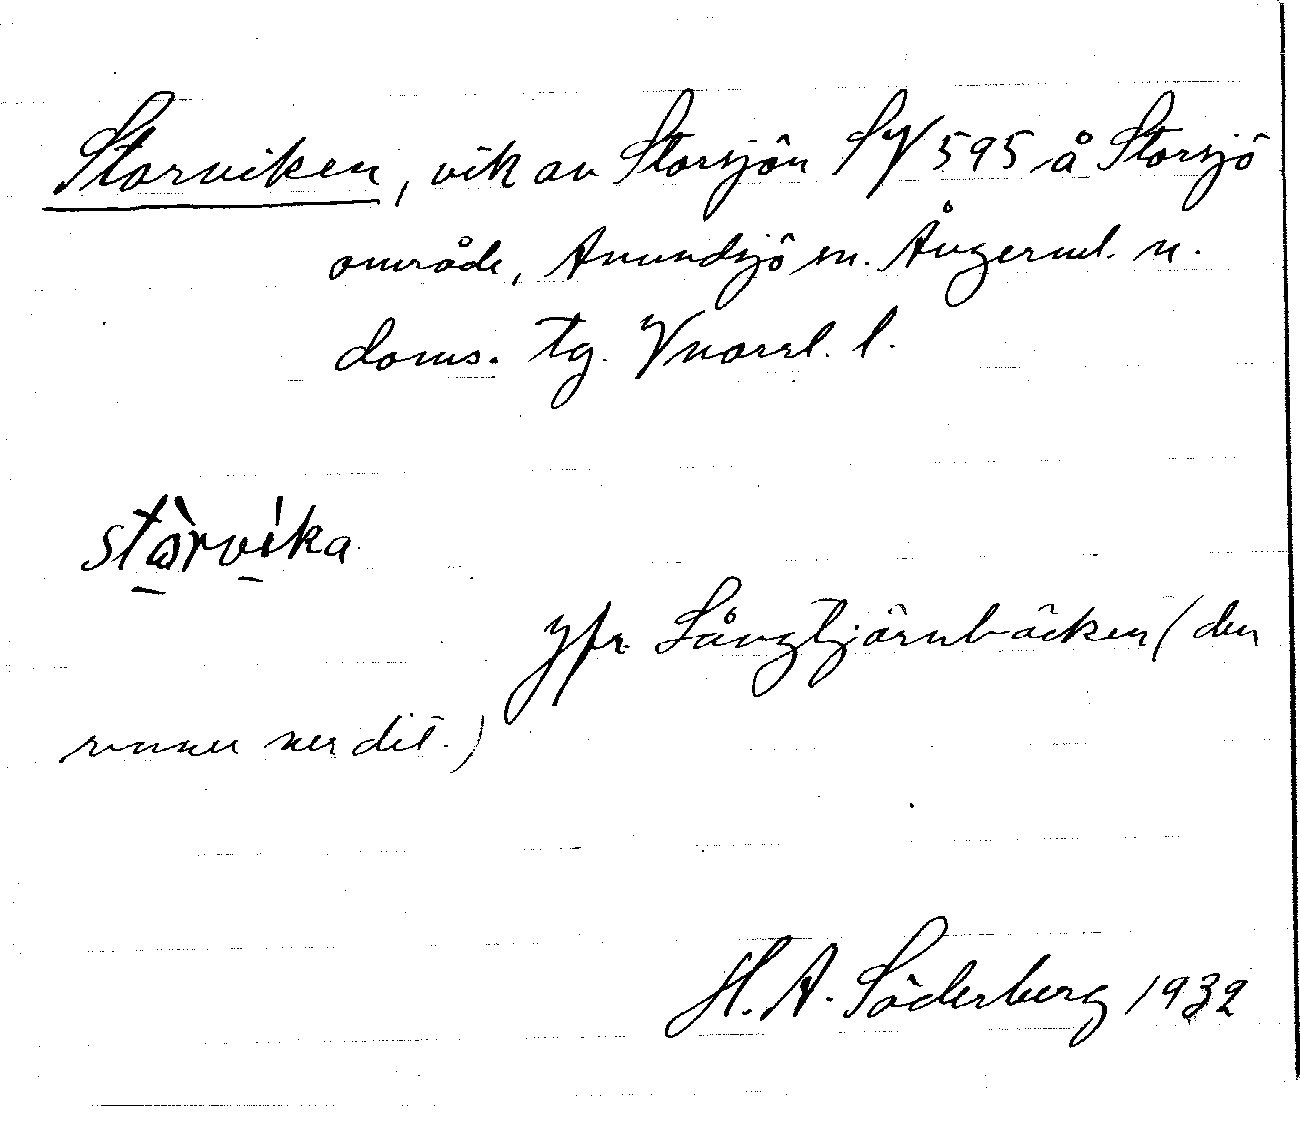 Storviken, vik av Storsjön SV 595 å Storsjö
område, Anundsjö sn. Ångerml. n.
doms. tg. Vnorrl. l.
stòrvíka
jfr. Långtjärnbäcken (den
rinner ner dit.)
H. A. Söderberg 1932